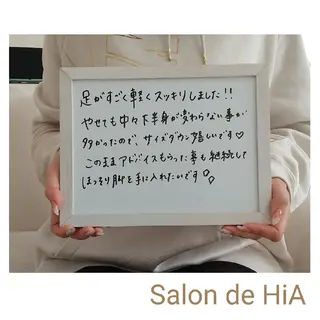 足がすごく軽くスッキリしました!!
やせても中々下半身が変わらない事が
多かったので、サイズダウン嬉しいです♡
このままアドバイスもらった事も継続して
ほっそり脚を手に入れたいです
Salon de HiA